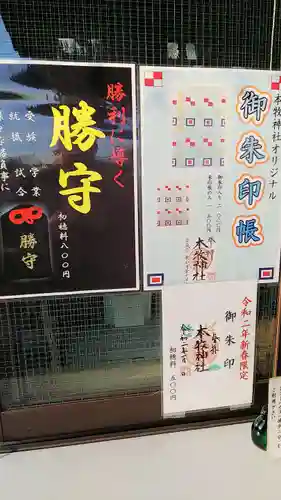 勝利に導く
勝守
初穂料八〇〇円
受験
学業
就職
試合
勝守
本牧神社オリジナル
御朱印帳
御朱印入り 二、〇〇〇円
本牧神社
令和二年新春限定
御朱印
奉拝
本牧神社
初穂料 五〇〇円